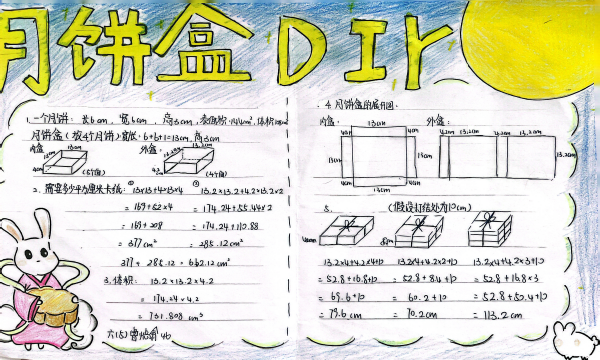 月饼盒DIY
1.一个月饼：长6cm，宽6cm，高3cm，表面积：144cm²，体积：108cm³
月饼盒（放4个月饼）宽/长：6+6+1=13cm，高3cm
内盒：
13cm
13cm
4cm
(5个面)
外盒：
13.2cm
13.2cm
4.2
(4个面)
2、需要多少平方厘米卡纸：
① 13×13+4×13×4
=169+52×4
=169+208
=377cm²
② 13.2×13.2+4.2×13.2×2
=174.24+55.44×2
=174.24+110.88
=285.12cm²
377+285.12=662.12cm²
3.体积：13.2×13.2×4.2
=174.24×4.2
=731.808cm³
六(5)曾 46
4.月饼盒的展开图.
内盒：
外盒：
4cm
13cm
4cm
13cm
13cm
4cm
4cm
13cm
4.2cm
13.2cm
4.2cm
13.2cm
13.2cm
5.
(假设打结处为10cm)
4cm
8cm
13.2×4+4.2×4+10
=52.8+16.8+10
=69.6+10
=79.6cm
13.2×4+4.2×2+10
=52.8+8.4+10
=60.2+10
=70.2cm
13.2×4+4.2×3+10
=52.8+16.8×3
=52.8+50.4+10
=113.2cm